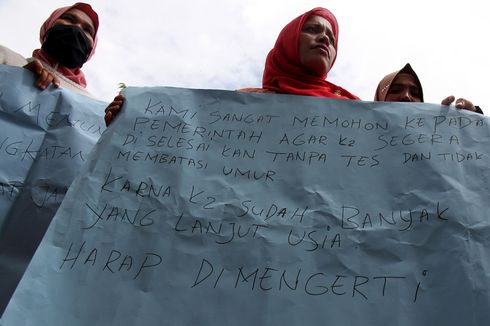 KAMI SANGAT MEMOHON KEPADA
PEMERINTAH AGAR K2 SEGERA
DI SELESAI KAN TANPA TES DAN TIDAK
MEMBATASI UMUR
KARNA K2 SUDAH BANYAK
YANG LANJUT USIA.
HARAP DIMENGERTI